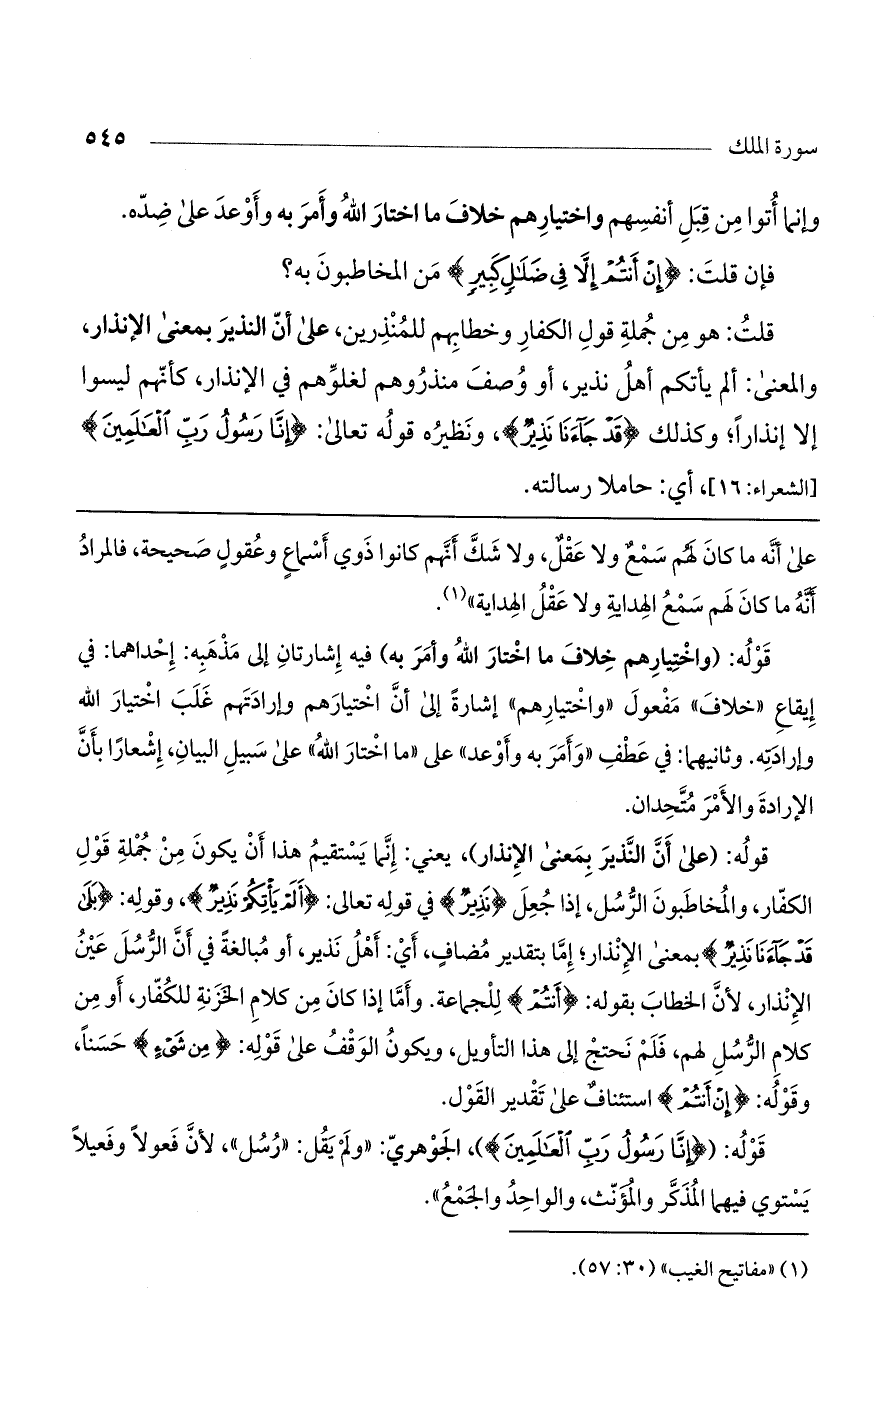 سورة الملك ٥٤٥
وإنما أُتوا مِن قِبَلِ أنفسِهم واختيارِهم خلافَ ما اختارَ اللهُ وأَمرَ به وأَوْعدَ علىٰ ضِدّه.
فإن قلتَ: ﴿إِنْ أَنتُمْ إِلَّا فِى ضَلَٰلٍ كَبِيرٍ﴾ مَن المخاطبونَ به؟
قلتُ: هو مِن جُملةِ قولِ الكفارِ وخطابِهم للمُنْذِرين، علىٰ أنّ النذيرَ بمعنىٰ الإنذار،
والمعنىٰ: ألم يأتكم أهلُ نذير، أو وُصفَ منذرُوهم لغلوِّهم في الإنذار، كأنّهم ليسوا
إلا إنذاراً؛ وكذلك ﴿قَدْ جَآءَنَا نَذِيرٌ﴾، ونَظيرُه قولُه تعالىٰ: ﴿إِنَّا رَسُولُ رَبِّ ٱلْعَٰلَمِينَ﴾
[الشعراء: ١٦]، أي: حاملا رسالته.
علىٰ أنَّه ما كانَ لَهُم سَمْعٌ ولا عَقْلٌ، ولا شَكَّ أنَّهم كانوا ذَوي أَسْماعٍ وعُقولٍ صَحيحة، فالمرادُ
أنَّهُ ما كانَ لَهم سَمْعُ الهِدايةِ ولا عَقْلُ الهِداية»(١).
قَوْلُه: (واخْتِيارِهم خِلافَ ما اختَارَ اللهُ وأمَرَ به) فيه إشارتانِ إلى مَذْهَبِه: إحْداهما: في
إيقاعِ «خلافَ» مَفْعولَ «واخْتيارِهم» إشارةً إلىٰ أنَّ اخْتيارَهم وإرادَتَهم غَلَبَ اخْتيارَ الله
وإرادَتِه. وثانيهما: في عَطْفِ «وَأَمَرَ به وأَوْعد» على «ما اخْتارَ اللهُ» علىٰ سَبيلِ البيانِ، إشْعارًا بأنَّ
الإرادةَ والأَمْرَ مُتَّحِدان.
قولُه: (علىٰ أنَّ النَّذيرَ بِمَعنىٰ الإنذار)، يعني: إنَّما يَسْتقيمُ هذا أنْ يكونَ مِنْ جُمْلةِ قَوْلِ
الكفّار، والمُخاطَبونَ الرُّسُل، إذا جُعِلَ ﴿نَذِيرٌ﴾ في قوله تعالى: ﴿أَلَمْ يَأْتِكُمْ نَذِيرٌ﴾، وقولِه: ﴿بَلَىٰ
قَدْ جَآءَنَا نَذِيرٌ﴾ بمعنىٰ الإنْذار؛ إمَّا بتقدير مُضاف، أيْ: أهْلُ نَذير، أو مُبالغةً في أنَّ الرُّسُلَ عَيْنُ
الإنْذار، لأنَّ الخطابَ بقوله: ﴿أَنتُمْ﴾ لِلْجماعة. وأمَّا إذا كانَ مِن كلامِ الخَزَنةِ للكُفّار، أو مِن
كلامِ الرُّسُلِ لهم، فَلَمْ نَحتجْ إلى هذا التأويل، ويكونُ الوَقْفُ علىٰ قَوْلِه: ﴿مِن شَىْءٍ﴾ حَسَناً،
وقَوْلُه: ﴿إِنْ أَنتُمْ﴾ استئنافٌ علىٰ تَقْدير القَوْل.
قَوْلُه: (﴿إِنَّا رَسُولُ رَبِّ ٱلْعَٰلَمِينَ﴾)، الجَوْهريّ: «ولَمْ يَقُل: «رُسُل»، لأنَّ فَعولاً وفَعيلاً
يَسْتوي فيهما المُذَكَّر والمُؤَنّث، والواحِدُ والجَمْعُ».
(١) «مفاتيح الغيب» (٣٠: ٥٧).